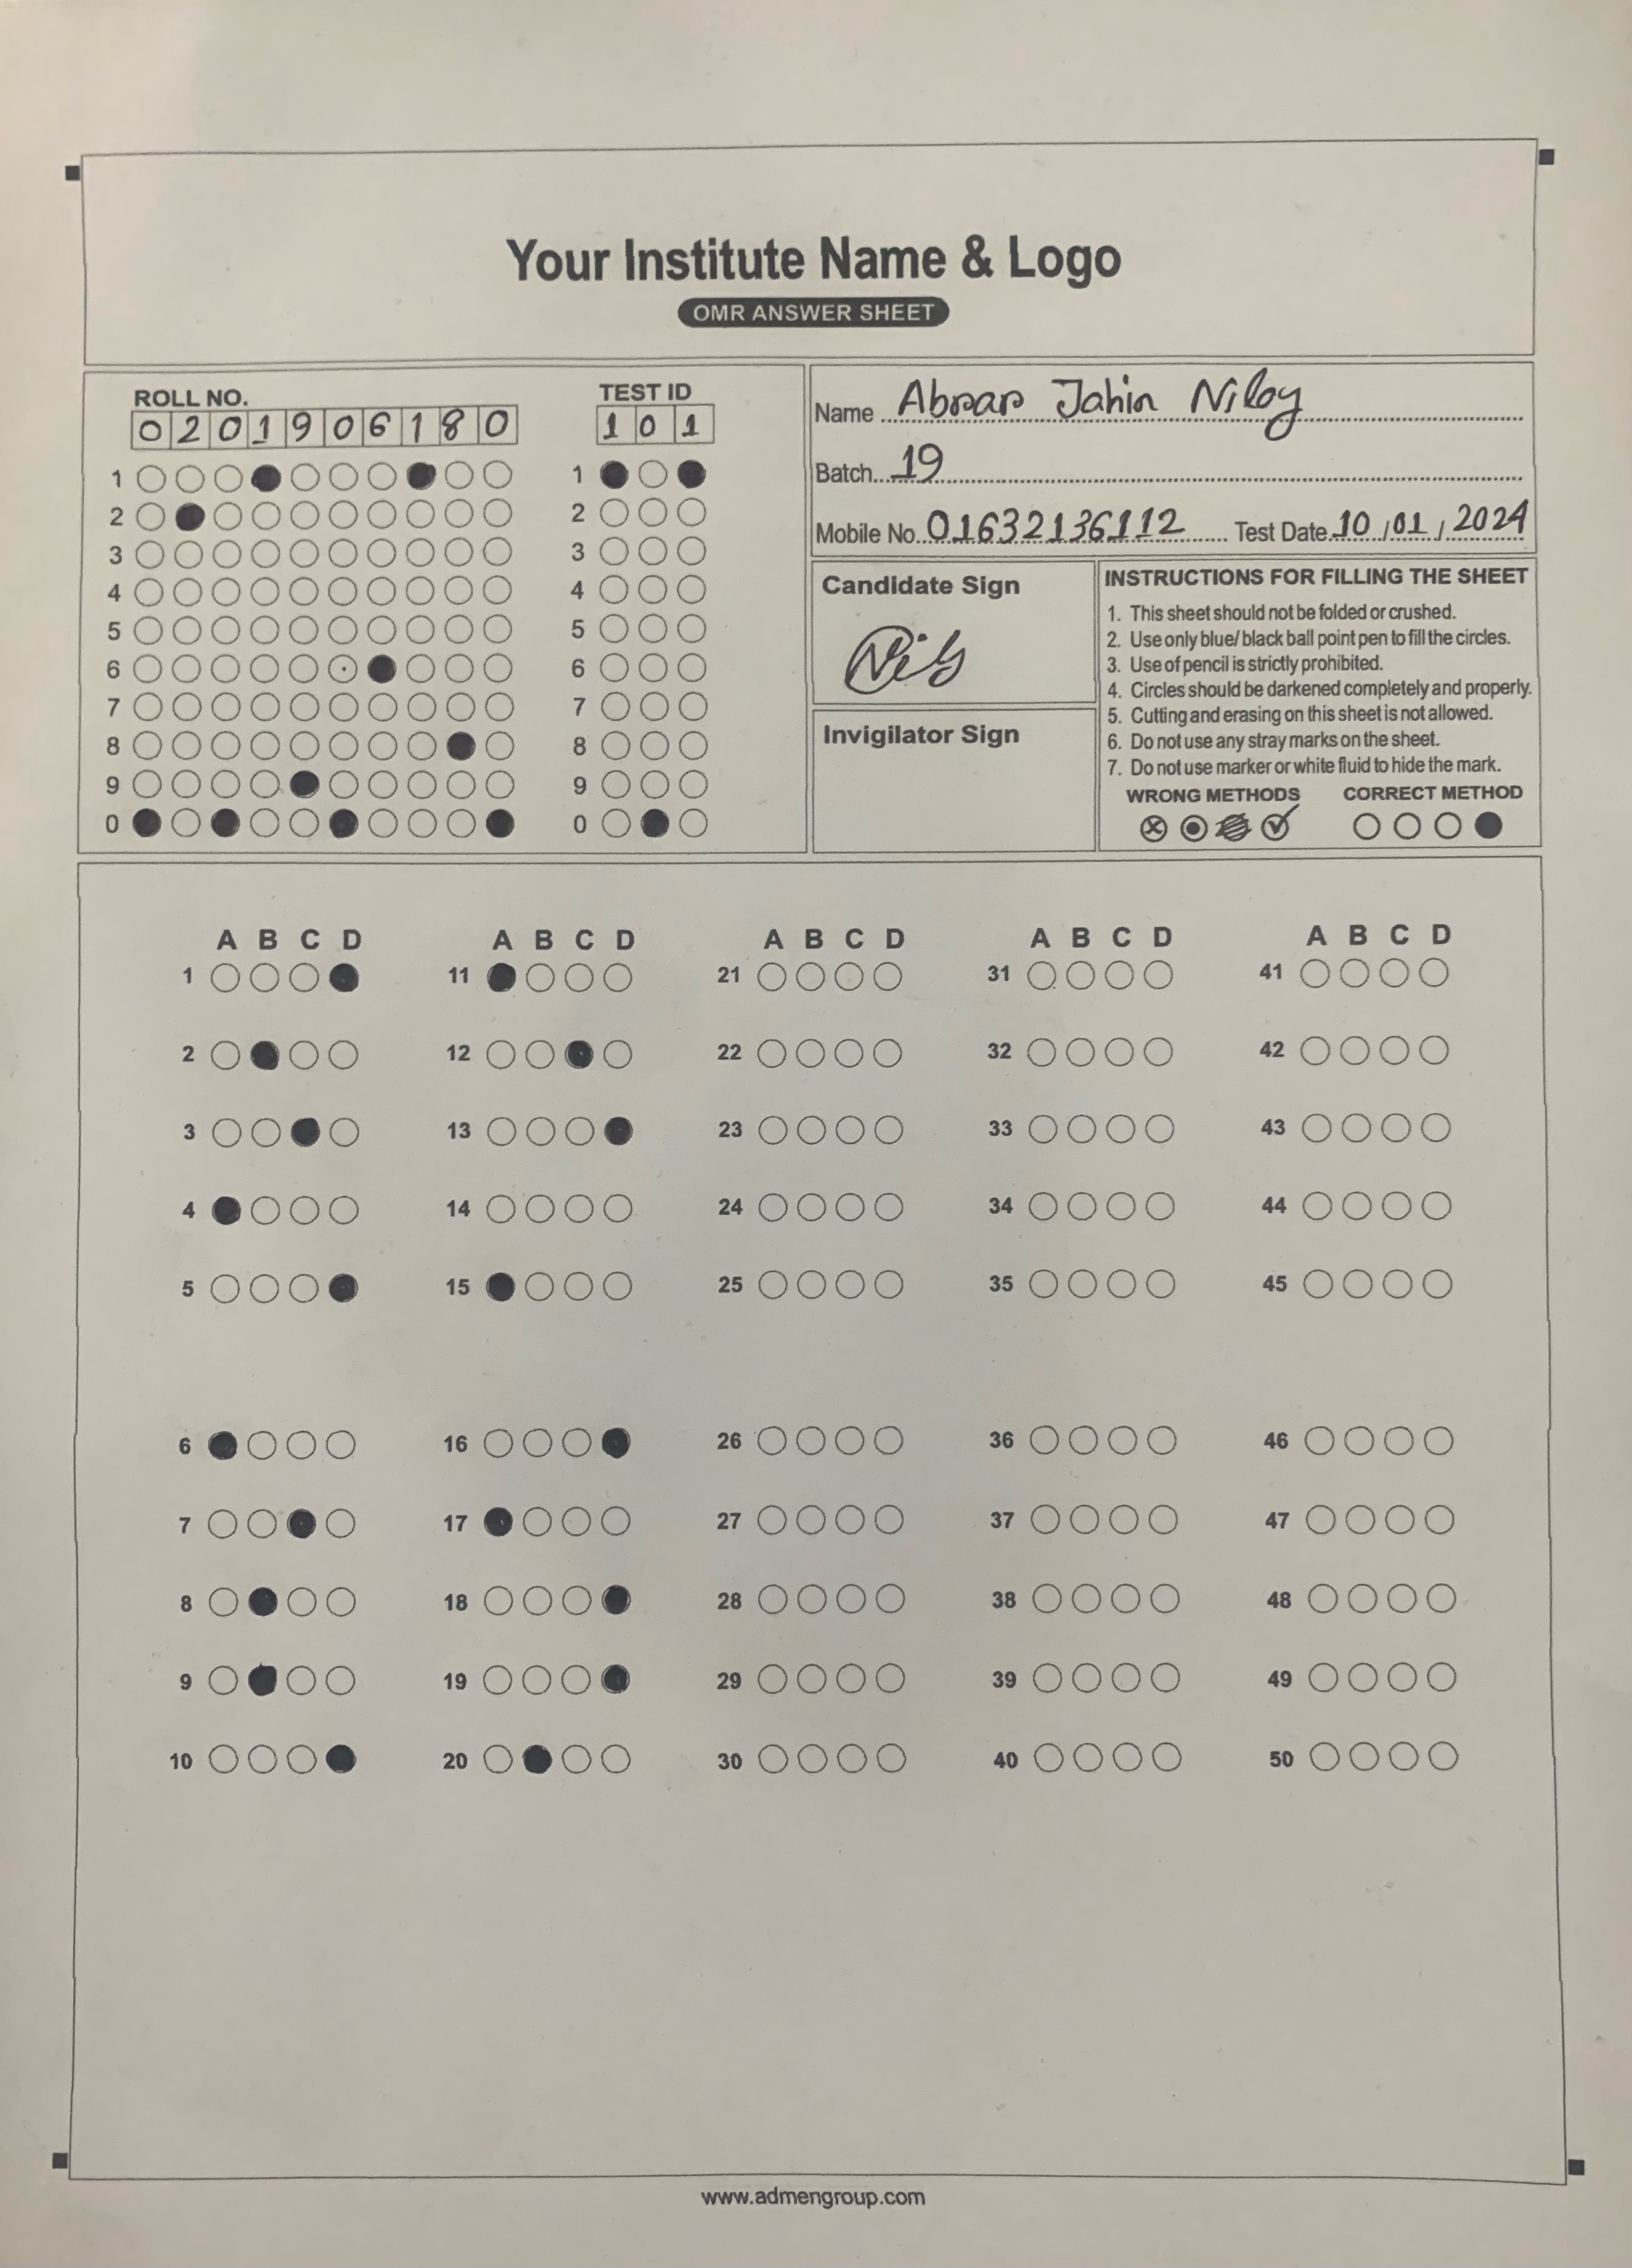 Your Institute Name & Logo
OMR ANSWER SHEET
ROLL NO.
0 2 0 1 9 0 6 1 8 0
1
2
3
4
5
6
7
8
9
0
TEST ID
1 0 1
1
2
3
4
5
6
7
8
9
0
Name Abrar Jahin Niloy
Batch 19
Mobile No. 01632136112 Test Date 10/01/2024
Candidate Sign
Invigilator Sign
INSTRUCTIONS FOR FILLING THE SHEET
1. This sheet should not be folded or crushed.
2. Use only blue/ black ball point pen to fill the circles.
3. Use of pencil is strictly prohibited.
4. Circles should be darkened completely and properly.
5. Cutting and erasing on this sheet is not allowed.
6. Do not use any stray marks on the sheet.
7. Do not use marker or white fluid to hide the mark.
WRONG METHODS CORRECT METHOD
A B C D
1
2
3
4
5
6
7
8
9
10
A B C D
11
12
13
14
15
16
17
18
19
20
A B C D
21
22
23
24
25
26
27
28
29
30
A B C D
31
32
33
34
35
36
37
38
39
40
A B C D
41
42
43
44
45
46
47
48
49
50
www.admengroup.com